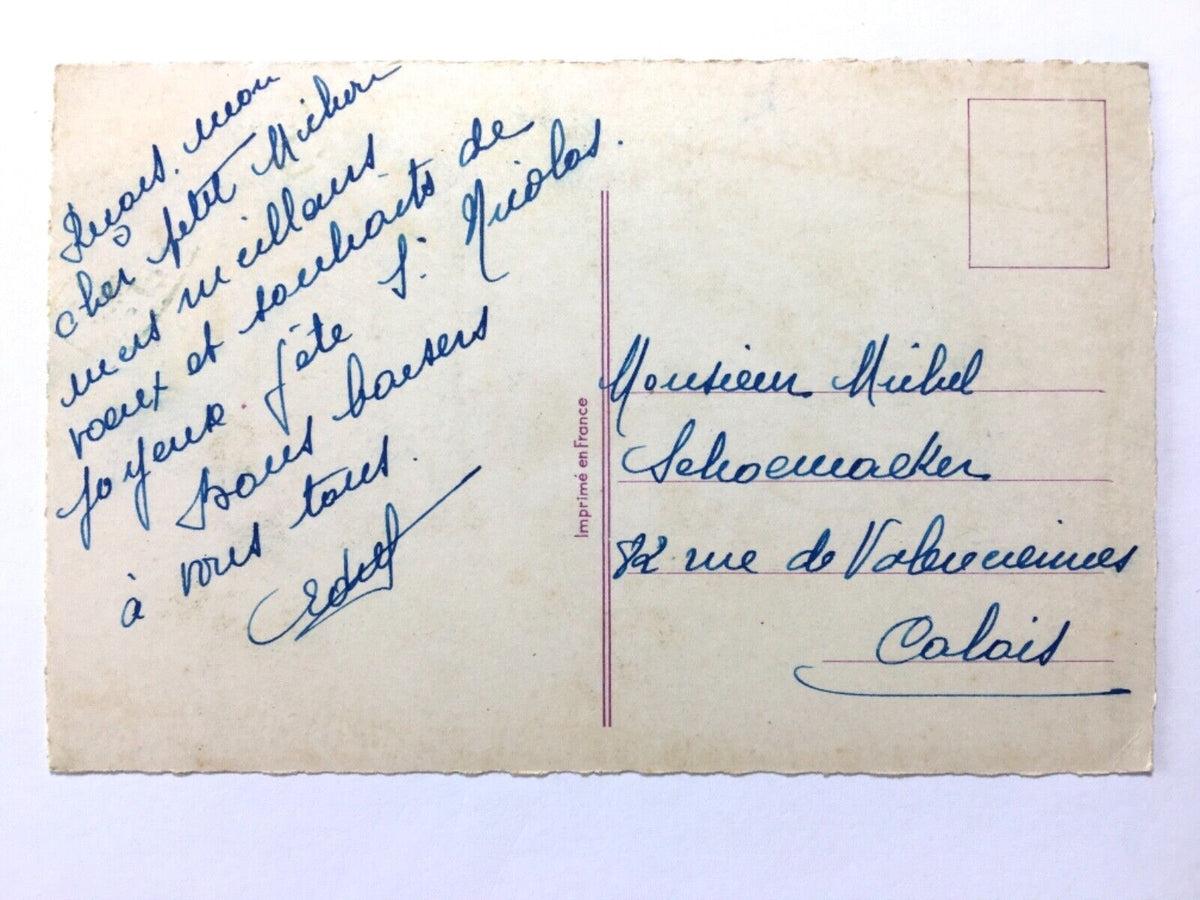 Reçois mon
cher petit Michel
mes meilleurs
vœux et souhaits de
joyeuse fête St Nicolas.
Bons baisers
à vous tous.
Imprimé en France
Monsieur Michel
Schoemacker
82 rue de Valenciennes
Calais